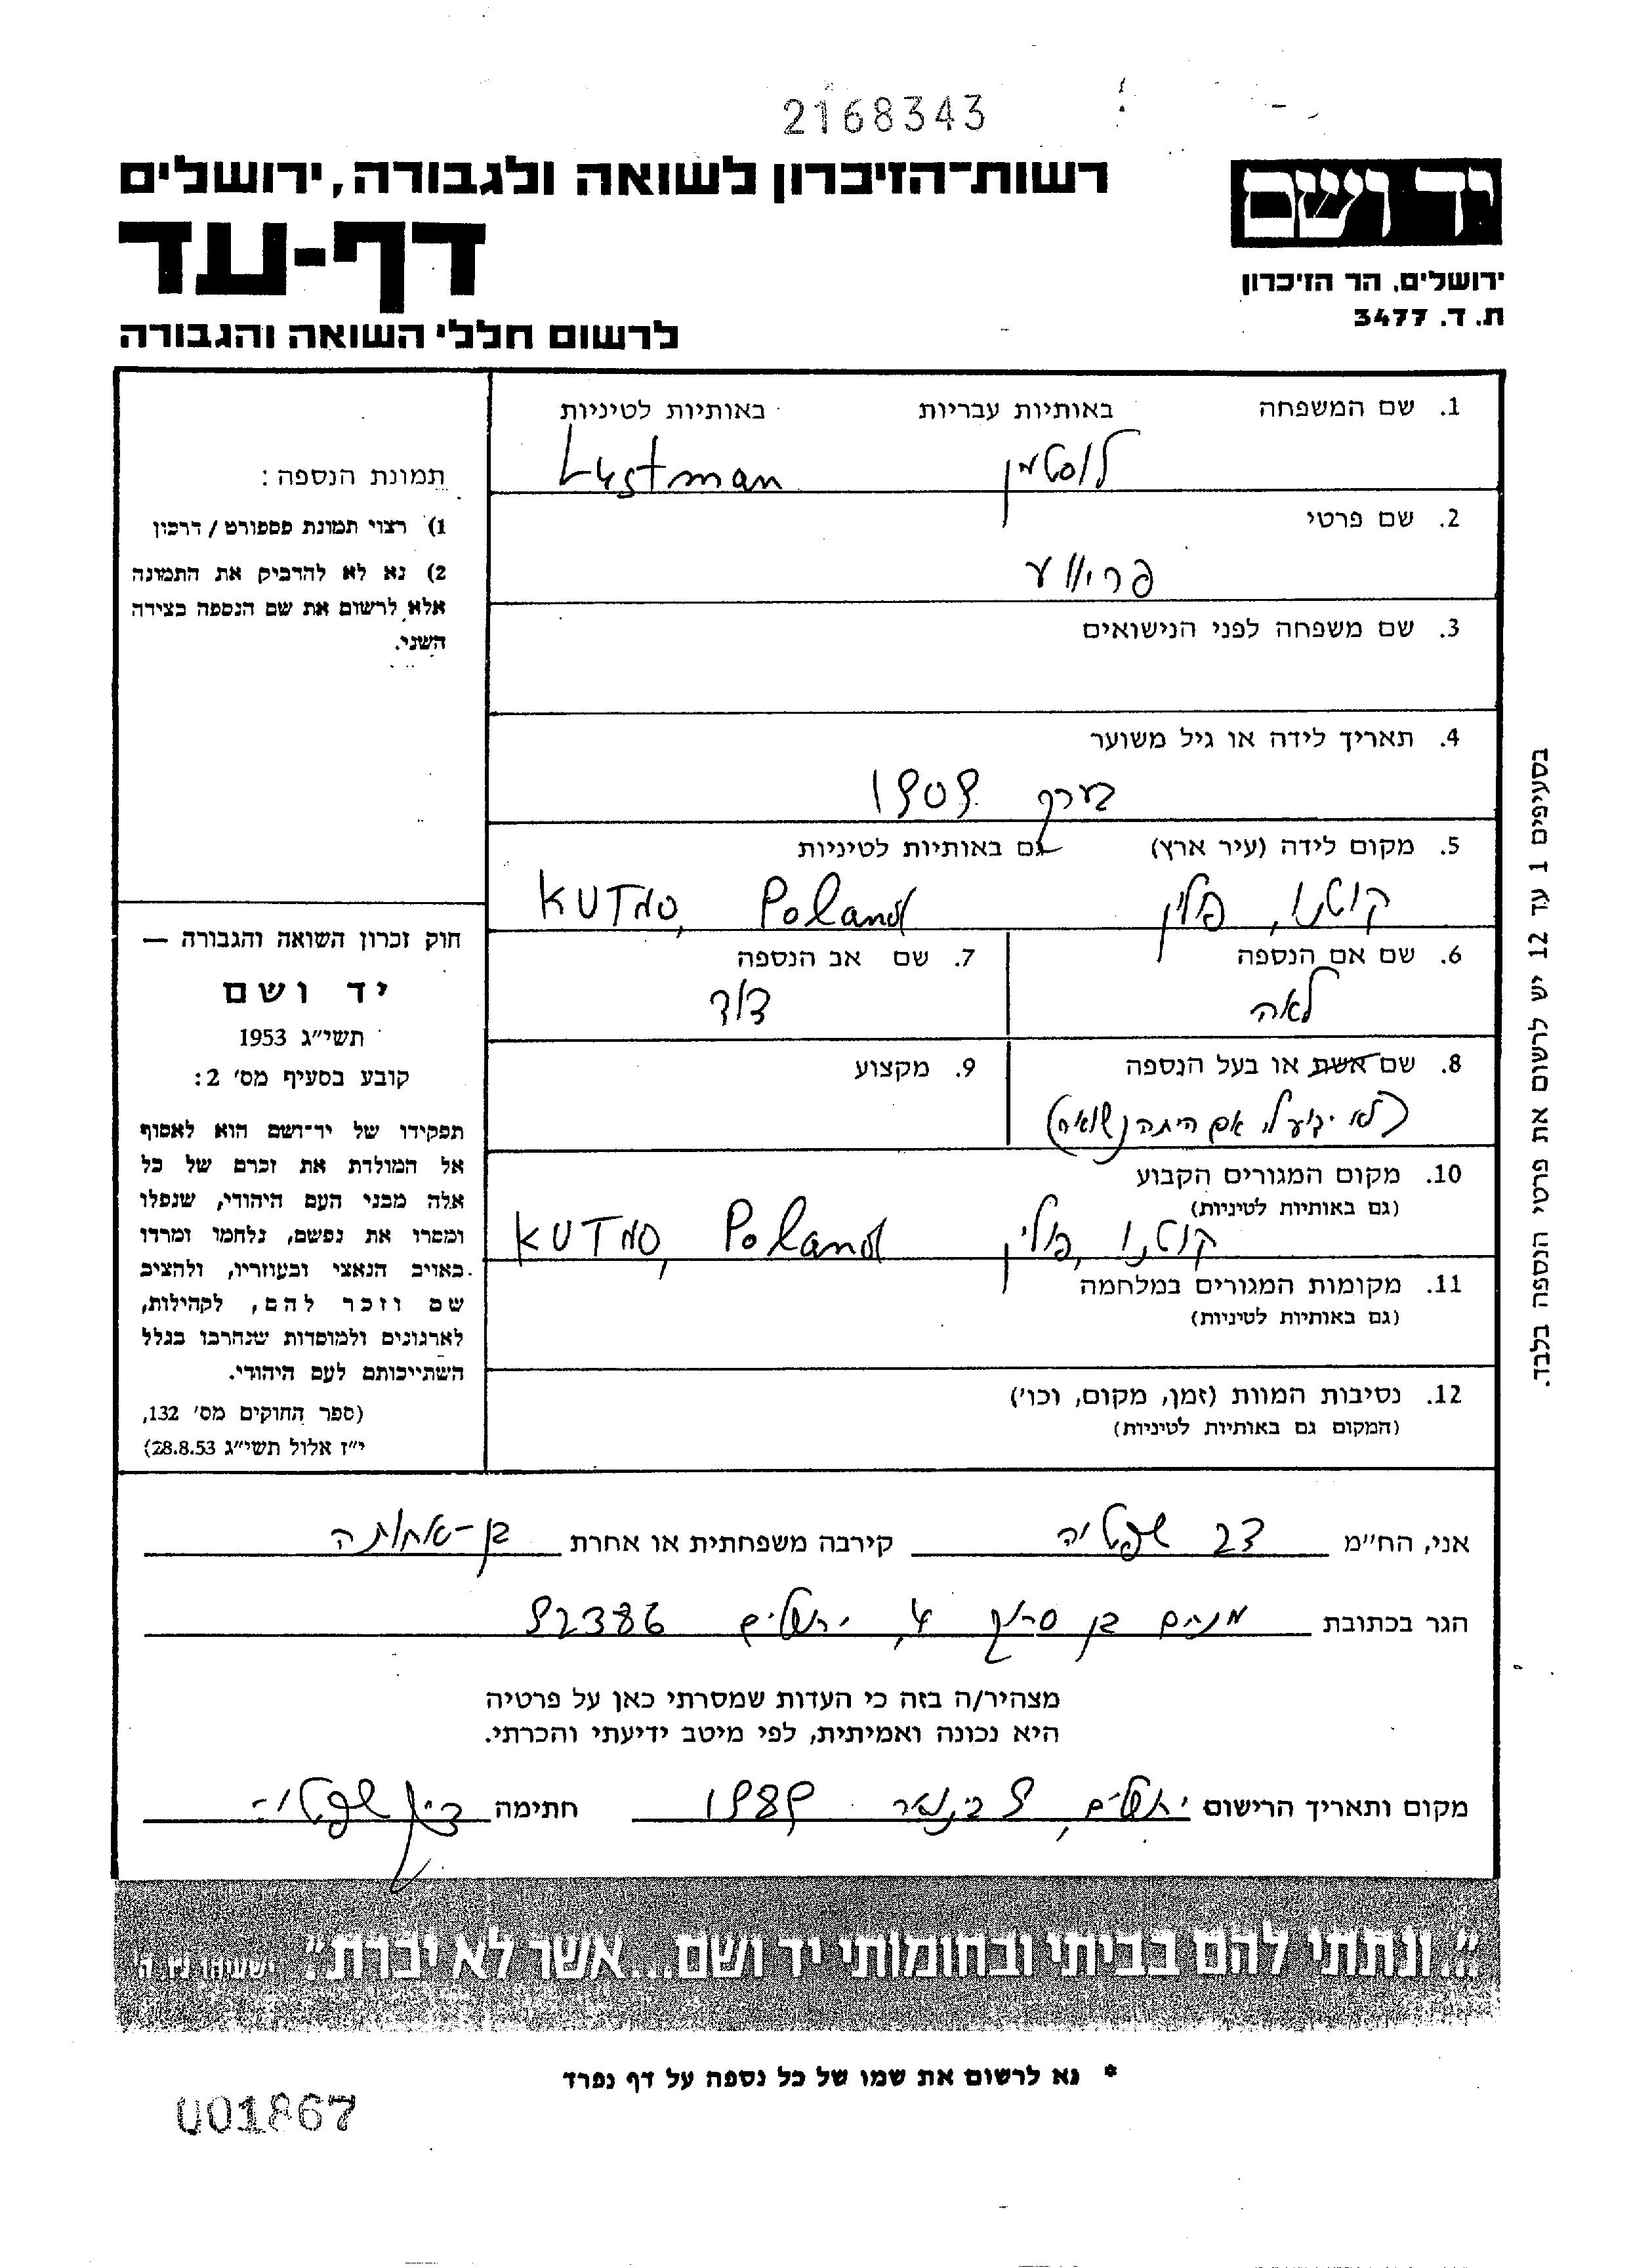 2168343
רשות־הזיכרון לשואה ולגבורה, ירושלים
דף-עד
לרשום חללי השואה והגבורה
יד ושם
ירושלים, הר הזיכרון
ת. ד. 3477
1. שם המשפחה באותיות עבריות באותיות לטיניות
לוסטמן Lustman
2. שם פרטי
פריווע
3. שם משפחה לפני הנישואים
4. תאריך לידה או גיל משוער
בערך 1909
5. מקום לידה (עיר ארץ) גם באותיות לטיניות
קוטנו, פולין KUTNO, Poland
6. שם אם הנספה 7. שם אב הנספה
לאה דוד
8. שם אשת או בעל הנספה 9. מקצוע
(לא ידוע לי אם היתה נשואה)
10. מקום המגורים הקבוע
(גם באותיות לטיניות)
קוטנו, פולין KUTNO, Poland
11. מקומות המגורים במלחמה
(גם באותיות לטיניות)
12. נסיבות המוות (זמן, מקום, וכו')
(המקום גם באותיות לטיניות)
תמונת הנספה:
1) רצוי תמונת פספורט / דרכון
2) נא לא להדביק את התמונה
אלא לרשום את שם הנספה בצידה
השני.
חוק זכרון השואה והגבורה —
יד ושם
תשי"ג 1953
קובע בסעיף מס' 2:
תפקידו של יד־ושם הוא לאסוף
אל המולדת את זכרם של כל
אלה מבני העם היהודי, שנפלו
ומסרו את נפשם, נלחמו ומרדו
באויב הנאצי ובעוזריו, ולהציב
שם וזכר להם, לקהילות,
לארגונים ולמוסדות שנחרבו בגלל
השתייכותם לעם היהודי.
(ספר החוקים מס' 132,
י"ז אלול תשי"ג 28.8.53)
בסעיפים 1 עד 12 יש לרשום את פרטי הנספה בלבד.
אני, הח"מ דב שפטיה קירבה משפחתית או אחרת בן-אחותה
הגר בכתובת מנחם בן סרוק 4, ירושלים 92386
מצהיר/ה בזה כי העדות שמסרתי כאן על פרטיה
היא נכונה ואמיתית, לפי מיטב ידיעתי והכרתי.
מקום ותאריך הרישום ירושלים, 9 בינואר 1989 חתימה
"...ונתתי להם בביתי ובחומותי יד ושם...אשר לא יכרת". ישעיהו נו, ה'
* נא לרשום את שמו של כל נספה על דף נפרד
001867